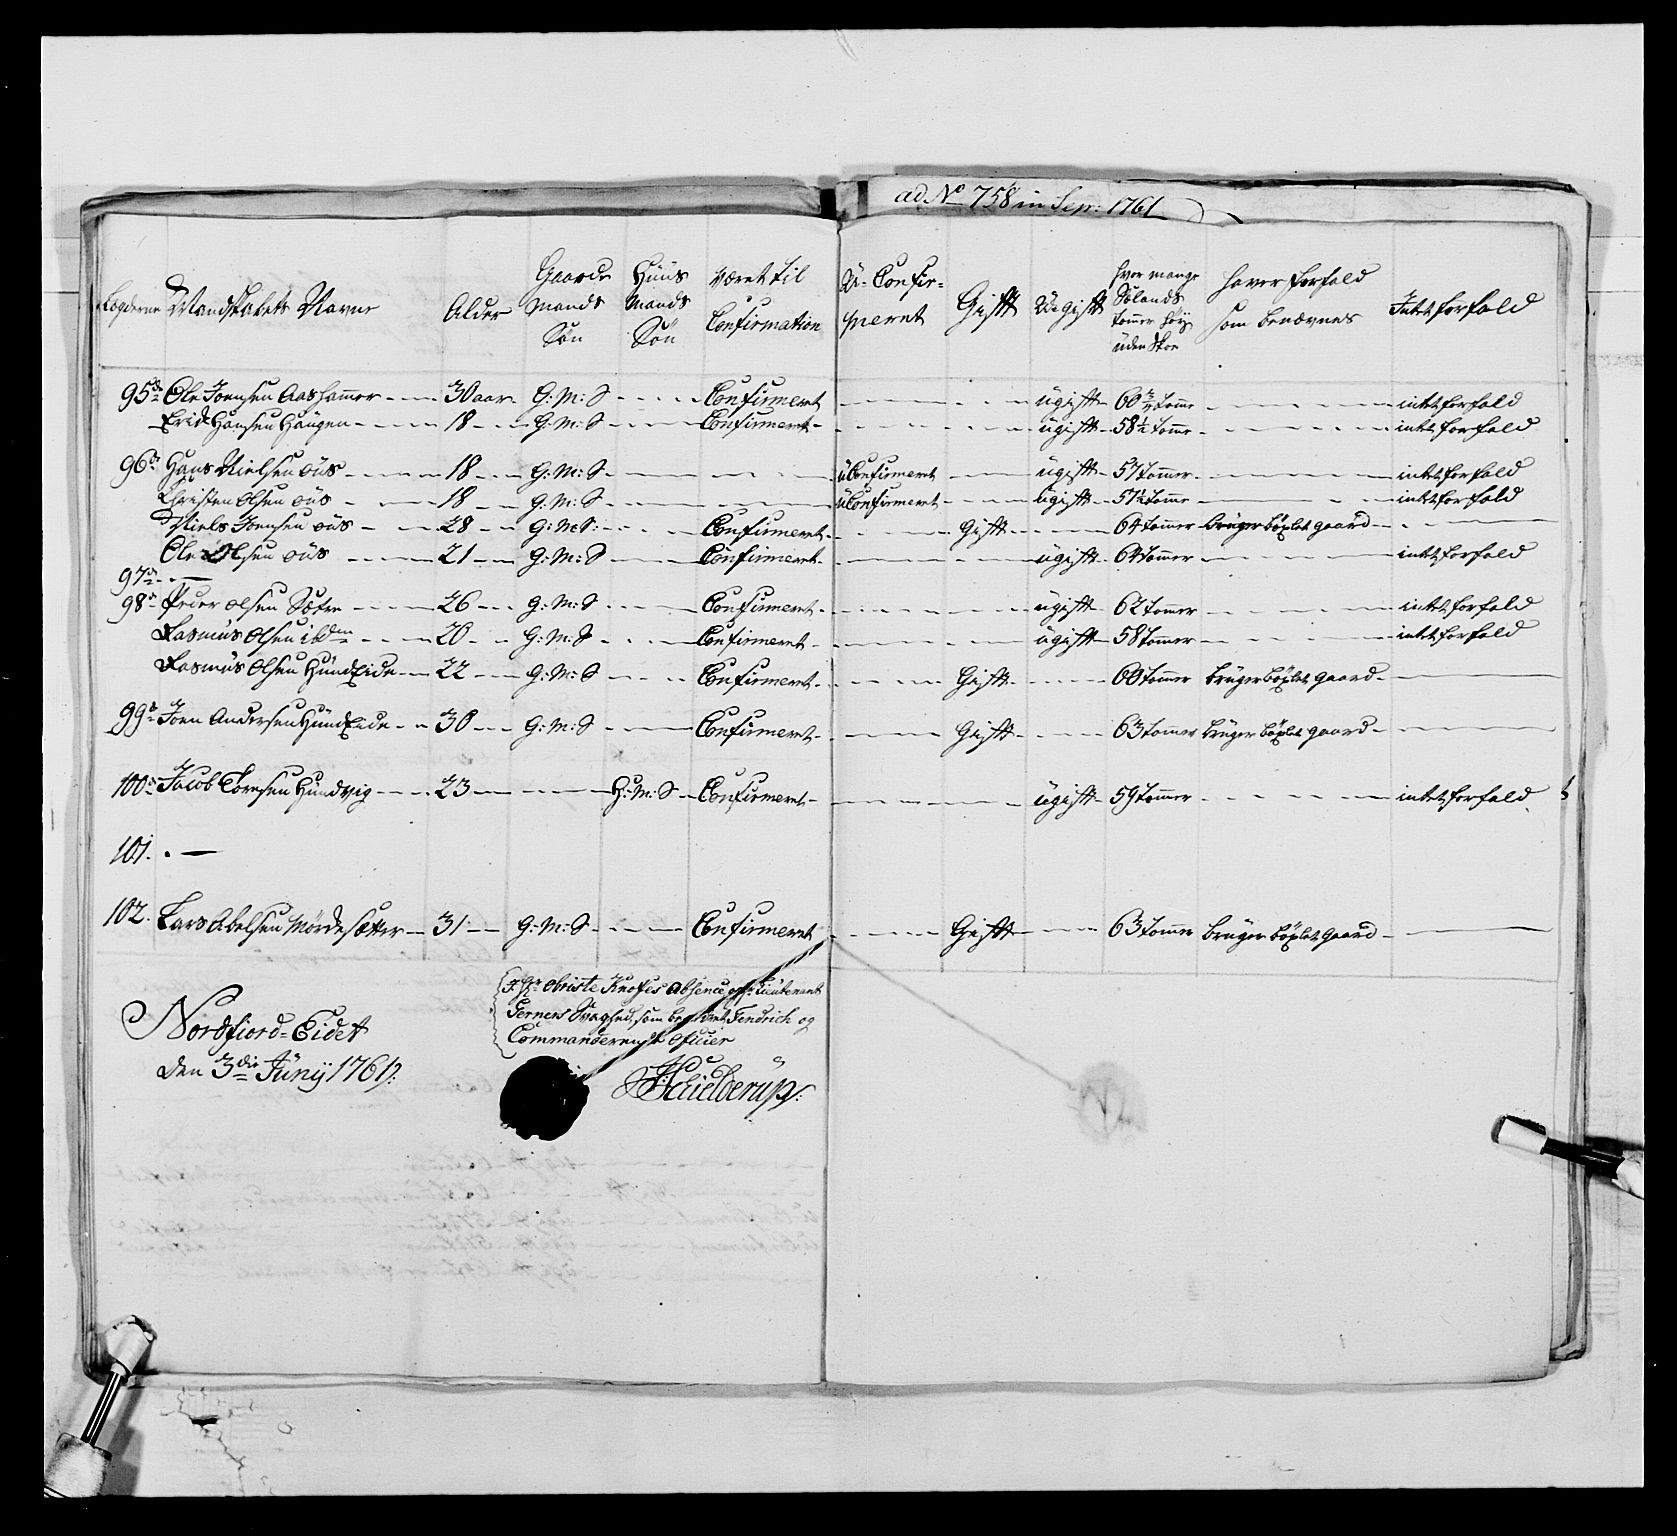 ad No 758 in Sepr: 1761
Lægderne Mandskabets Navne Alder Gaarde Mands Søn Huus Mands Søn Været til Confirmation U-Confirmeret Gift U-gift hvor mange Sølands tommer høy uden Skoe haver forfald som benævnes Intet forfald
95de Ole Joensen Aashammer 30 aar G:M:S Confirmeret ugift 60 3/4 tomme intet forfald
Erick Hansen Haugen 18 G:M:S Confirmeret ugift 58 1/2 tomme intet forfald
96de Hans Nielsen øus 18 G:M:S uConfirmeret ugift 57 tommer intet forfald
Christen Olsen øus 18 G:M:S uConfirmeret ugift 57 1/2 tomme intet forfald
Niels Joensen øus 28 G:M:S: Confirmeret Gift 64 tommer bruger böxlet gaard
Ole Olsen øus 21 G:M:S Confirmeret ugift 64 tommer intet forfald
97de
98de Peder olsen Sætre 26 G:M:S Confirmeret ugift 62 tommer intet forfald
Rasmus Olsen ibdm 20 G:M:S Confirmeret ugift 58 tommer intet forfald
Rasmus Olsen HundEide 22 G:M:S Confirmeret Gift 60 tommer bruger böxlet gaard
99de Joen Andersen HundEide 30 G:M:S Confirmeret Gift 63 tommer bruger böxlet gaard
100de Jacob Torresen Hundvig 23 H:M:S Confirmeret ugift 59 tommer intet forfald
101.
102. Lars Abelsen Mördesætter 31 G:M:S Confirmeret Gift 63 tomme bruger böxlet gaard
J Hr Christe Knofes Absence og Hr Lieutenant
Gerners Svaghed, som bestilret Fendrich og
Commanderende Oficier
Nordfiord-Eidet
den 3die Junij 1761:
JSchielderup: